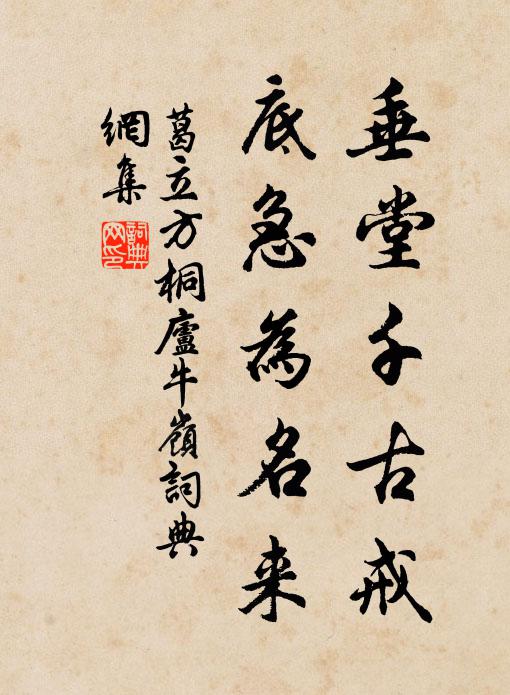 垂堂千古戒
底急為名来
葛立方桐廬牛嶺詞典
網集
詞典
网印